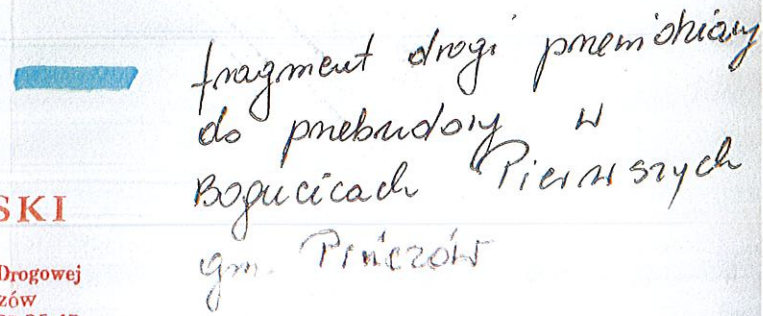 fragment drogi przewidziany
do przebudowy w
Bogucicach Pierwszych
gm. Pińczów
SKI
Drogowej
zów